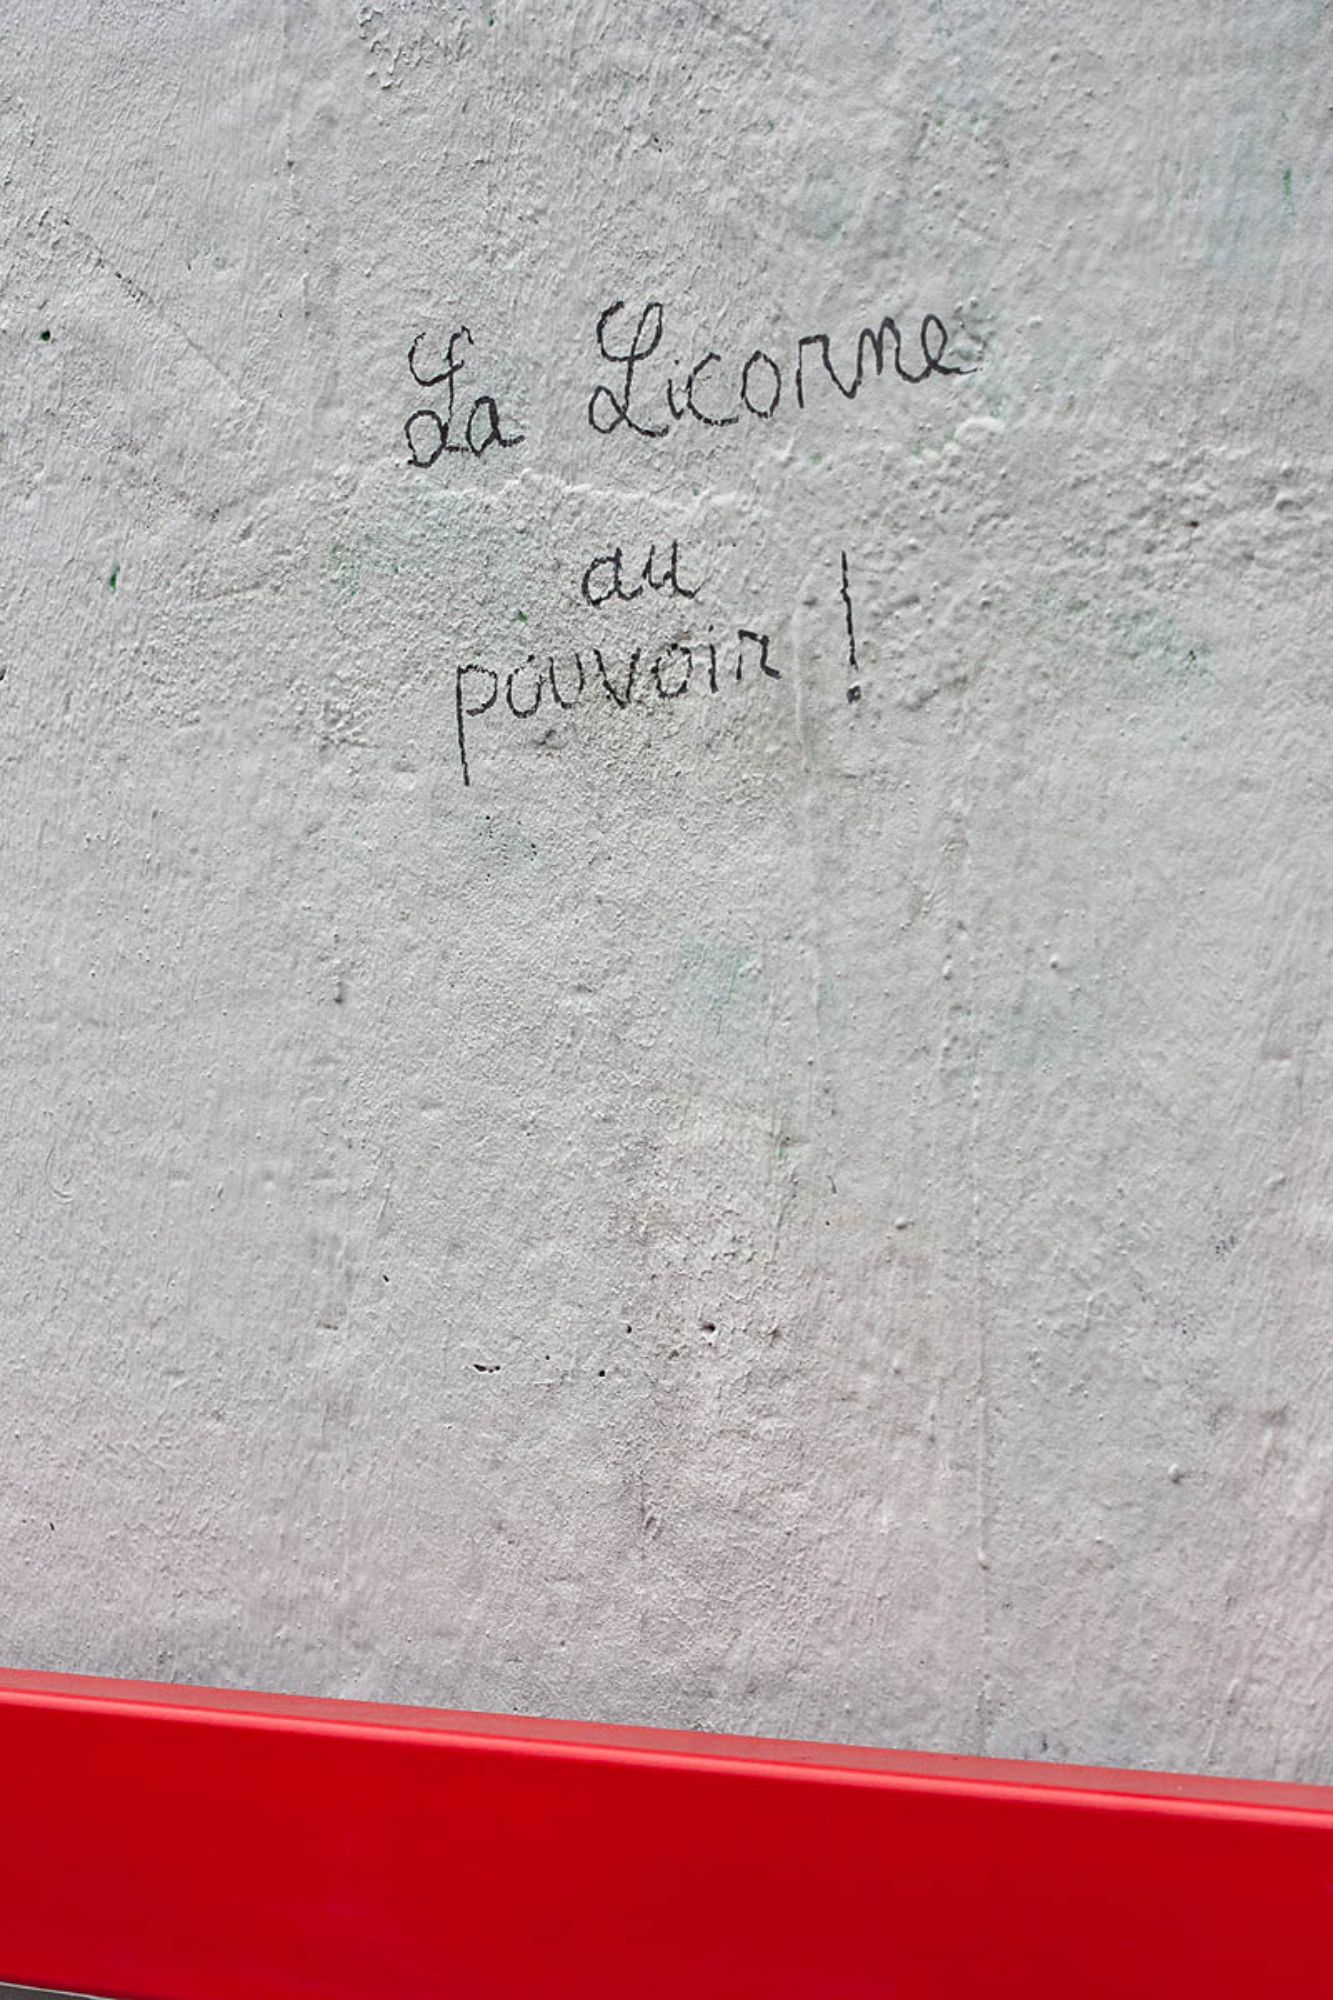 La Licorne
au
pouvoir !